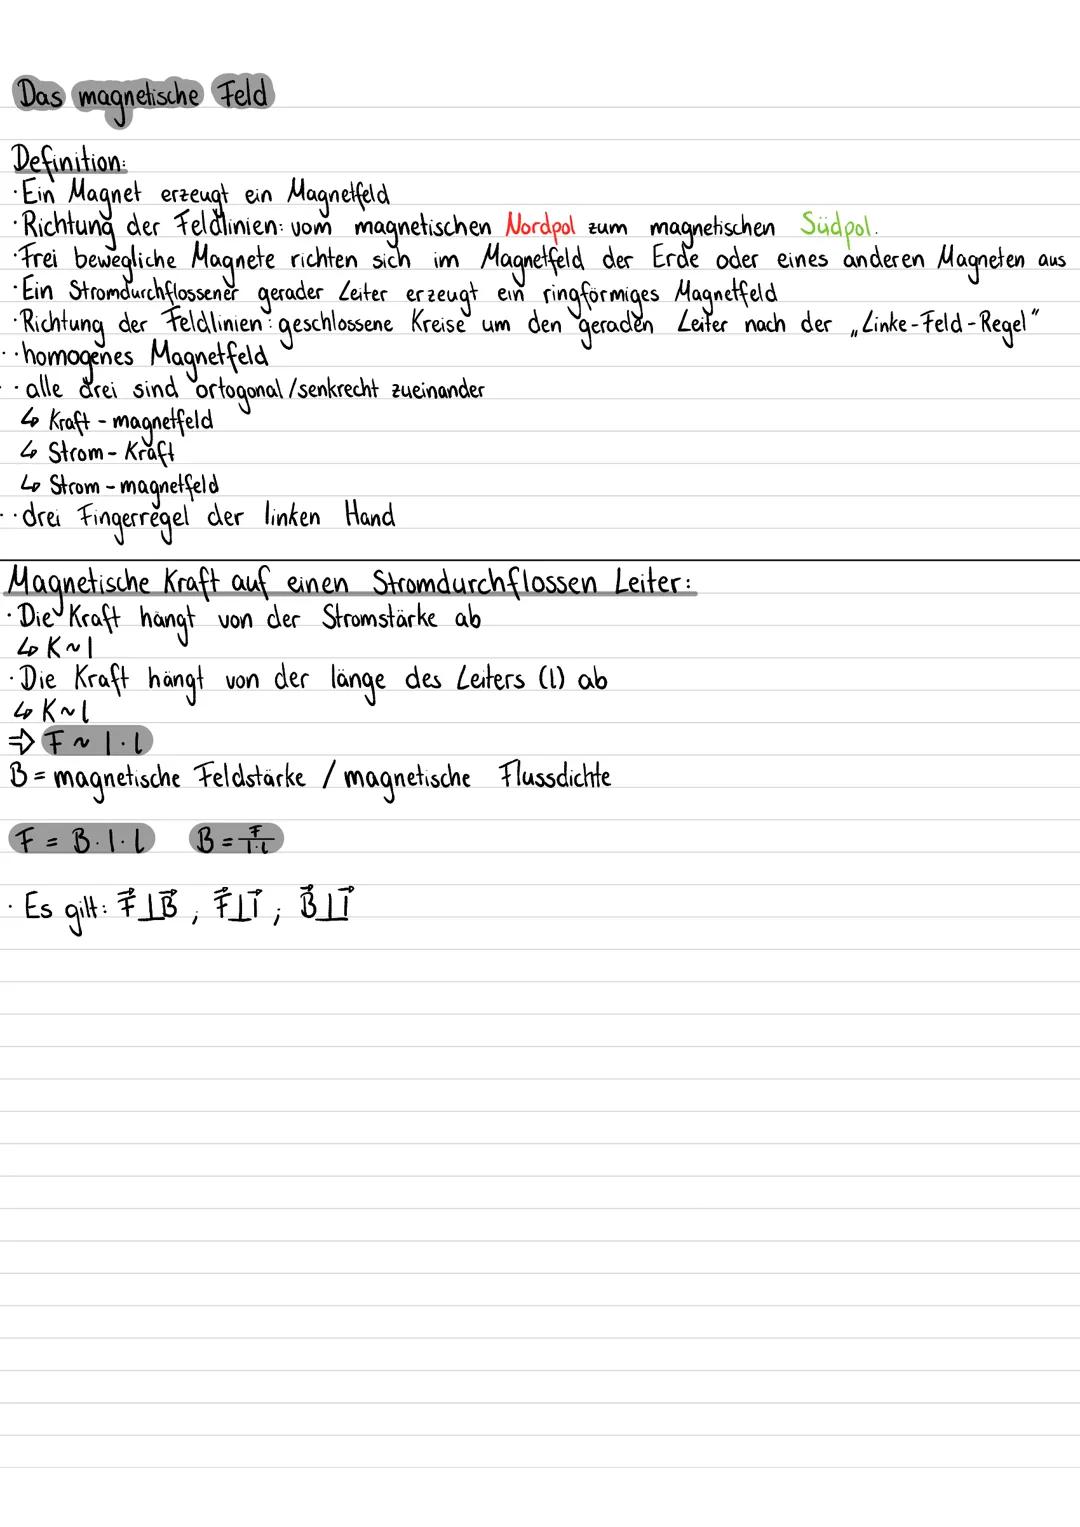 Das magnetische Feld
Definition:
· Ein Magnet erzeugt ein Magnetfeld
· Richtung der Feldlinien: vom magnetischen Nordpol zum magnetischen Südpol.
· Frei bewegliche Magnete richten sich im Magnetfeld der Erde oder eines anderen Magneten aus
· Ein Stromdurchflossener gerader Leiter erzeugt ein ringförmiges Magnetfeld
· Richtung der Feldlinien: geschlossene Kreise um den geraden Leiter nach der „Linke-Feld-Regel“
· homogenes Magnetfeld
· alle drei sind ortogonal/senkrecht zueinander
↳ Kraft - magnetfeld
↳ Strom - Kraft
↳ Strom - magnetfeld
· drei Fingerregel der linken Hand
Magnetische Kraft auf einen Stromdurchflossen Leiter:
· Die Kraft hängt von der Stromstärke ab
↳ K ~ I
· Die Kraft hängt von der länge des Leiters (l) ab
↳ K ~ l
⇒ F ~ I · l
B = magnetische Feldstärke / magnetische Flussdichte
F = B · I · l B = F/I·l
· Es gilt: F⃗⊥B⃗, F⃗⊥I⃗; B⃗⊥I⃗